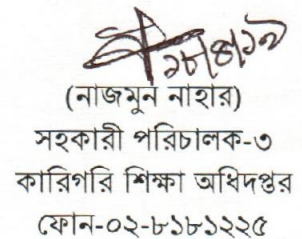 ১৮/৪/১৯
(নাজমুন নাহার)
সহকারী পরিচালক-৩
কারিগরি শিক্ষা অধিদপ্তর
ফোন-০২-৮১৮১২২৫